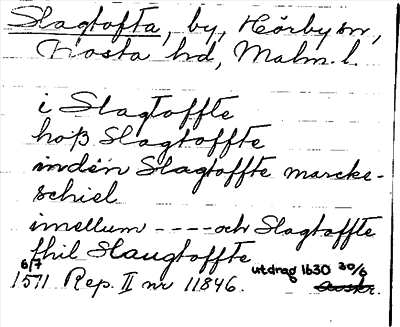 Slagtofta, by, Hörby sn,
Frosta hd, Malm. l.
i Slagtoffte
hoß Slagtoffte
inden Slagtoffte marcke-
schiel
imellum ---- och Slagtoffte
thil Slaugtoffte
6/7 1571 Rep. II nr 11846. utdrag 1630 30/6
Avskr.